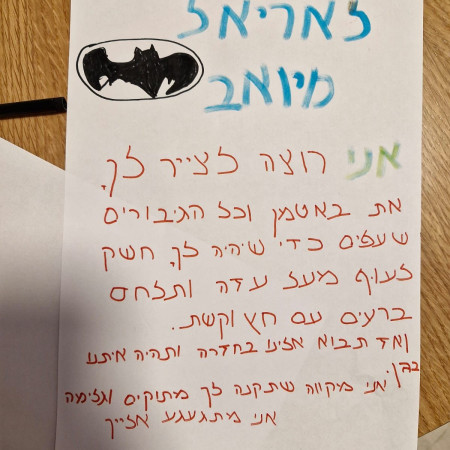 לאריאל
מיואב
אני רוצה לצייר לך
את באטמן וכל הגיבורים
שעפים כדי שיהיה לך חשק
לעוף מעל עזה ותלחם
ברעים עם חץ וקשת.
ואז תבוא אלינו בחדרה ותהיה איתנו
בגן.
אני מקווה שתקנה לך מתוקים וגלימה
אני מתגעגע אלייך